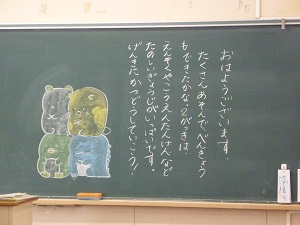 おはようございます。
たくさんあそんで、べんきょう
もできたかな。2がっきは、
えんそくやこうえんたんけんなど
たのしいぎょうじがいっぱいです。
げんきにかつどうしていこう！